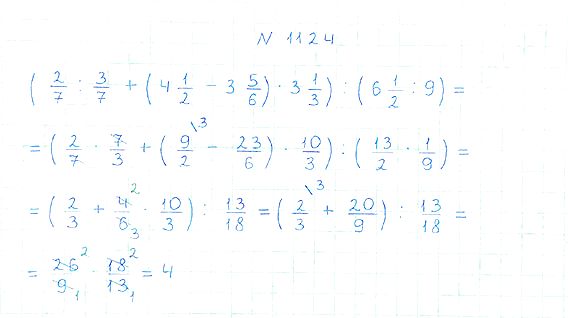 N 1124
( 2/7 : 3/7 + ( 4 1/2 - 3 5/6 ) · 3 1/3 ) : ( 6 1/2 : 9 ) =
= ( 2/7 · 7/3 + ( 9/2 \3 - 23/6 ) · 10/3 ) : ( 13/2 · 1/9 ) =
= ( 2/3 + 4 2/6 3 · 10/3 ) : 13/18 = ( 2/3 \3 + 20/9 ) : 13/18 =
= 26 2/9 1 · 18 2/13 1 = 4